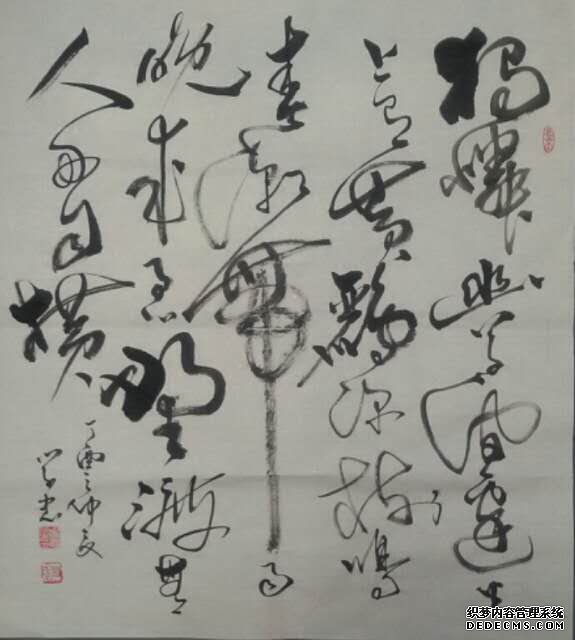 獨憐幽草澗邊生
上有黃鸝深樹鳴
春潮帶雨
晚來急野渡無
人舟自橫
丁酉之仲夏
织梦内容管理系统
DEDECMS.COM